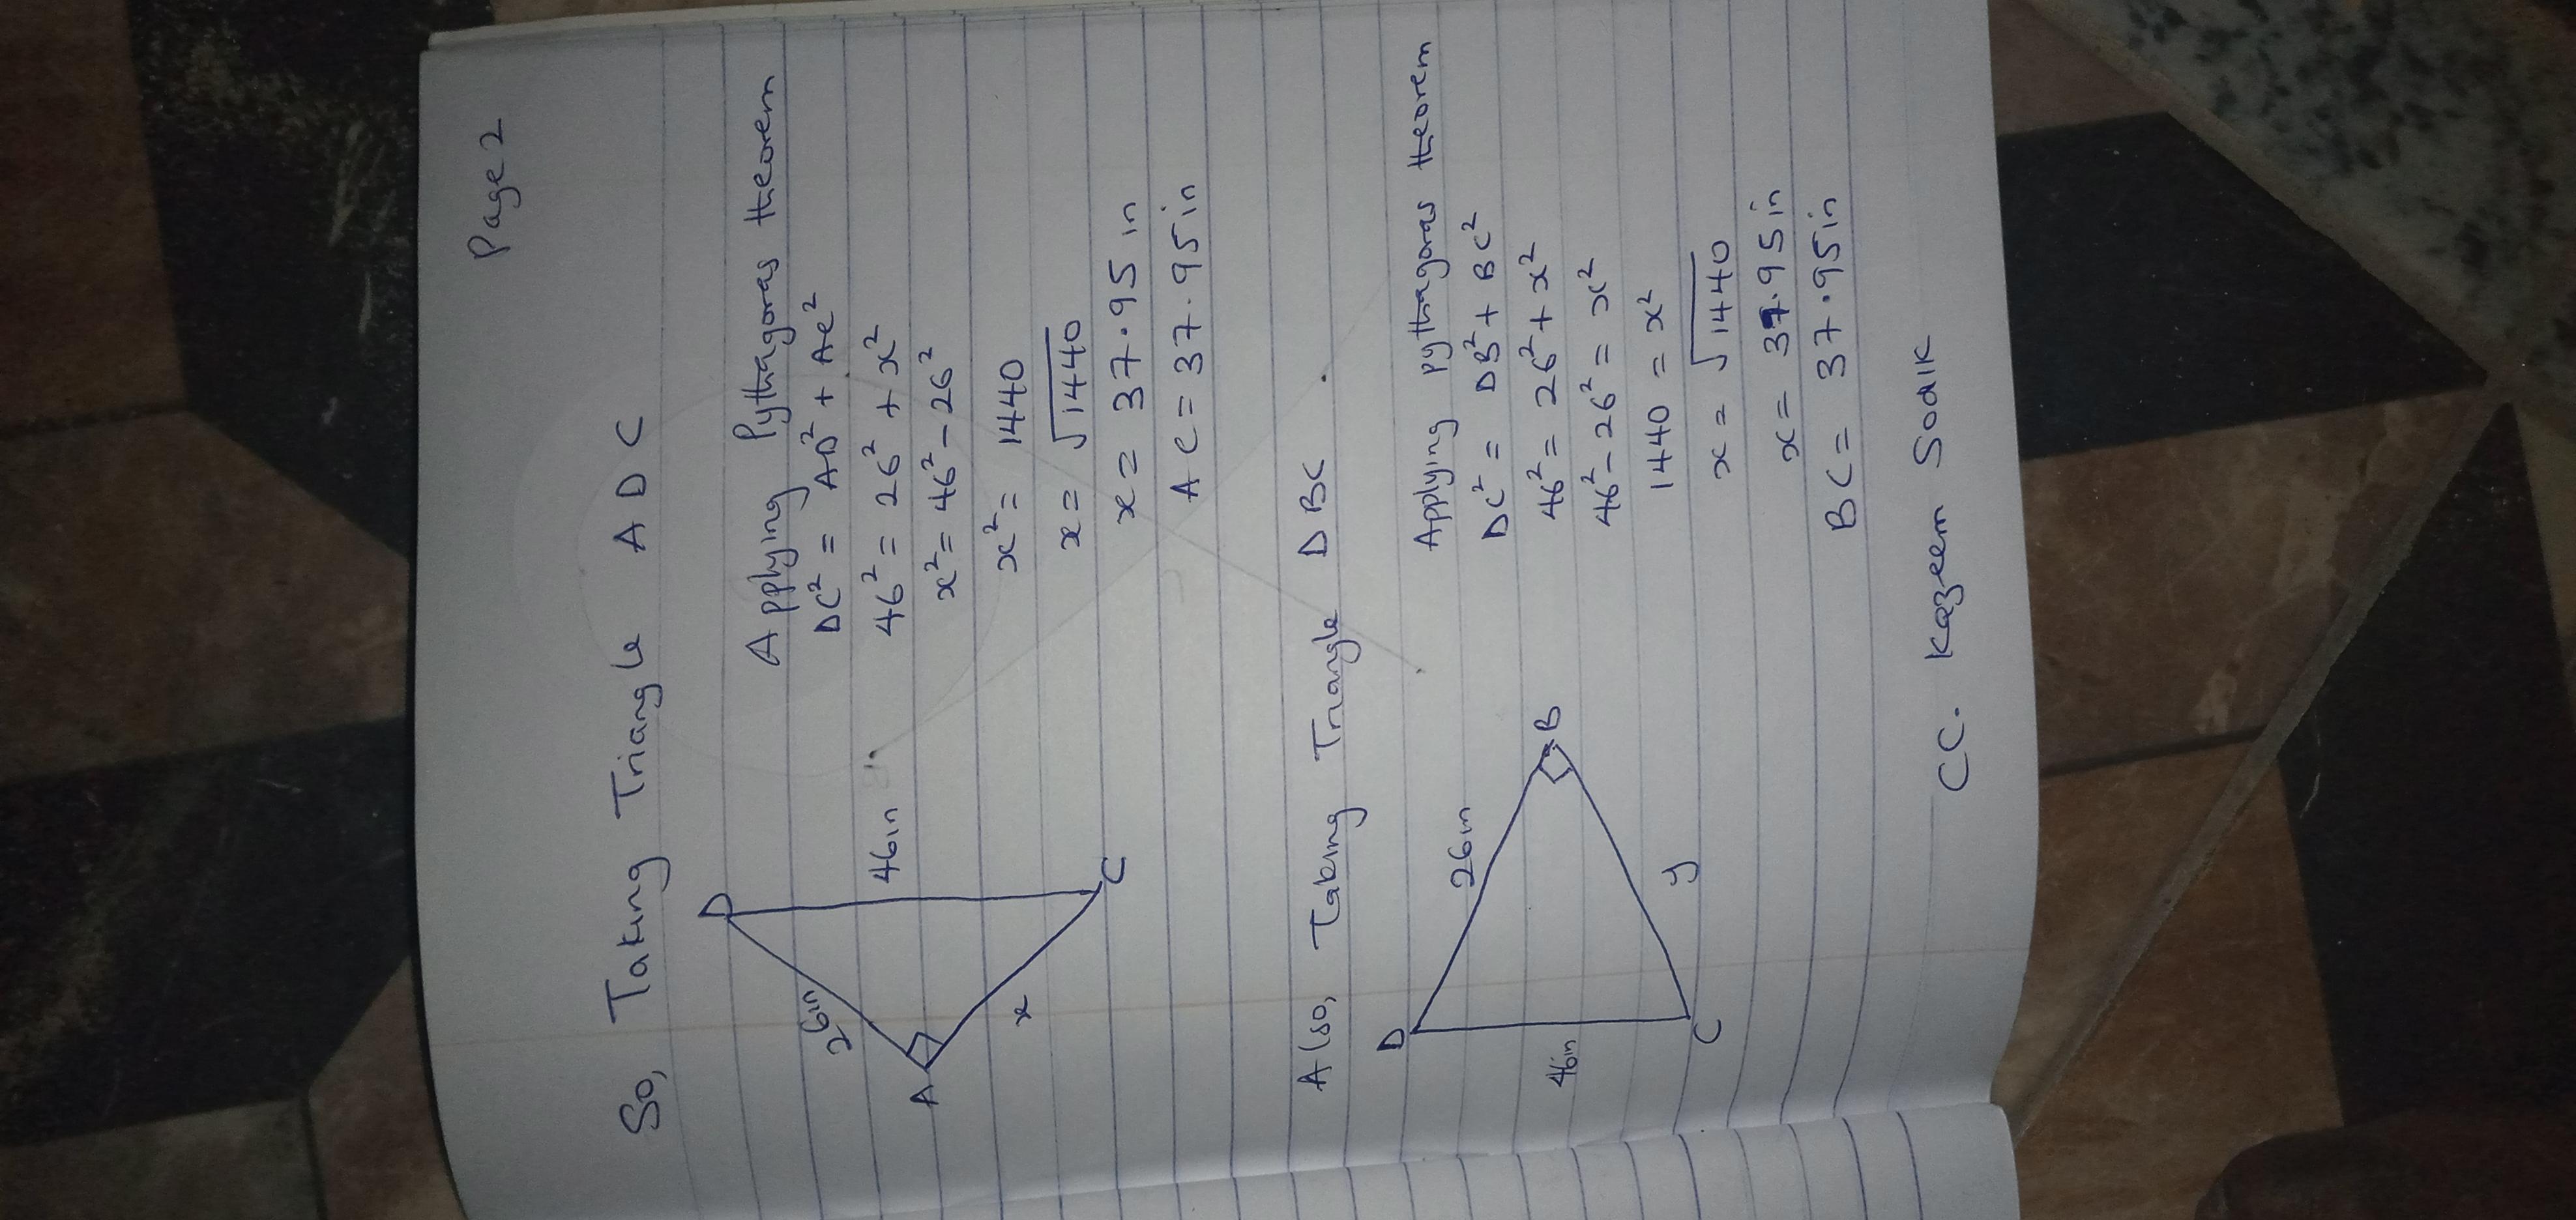 Page 2
So, Taking Triangle ADC
D
26in
46in
A
x
C
Applying Pythagoras theorem
DC² = AD² + AC²
46² = 26² + x²
x² = 46² - 26²
x² = 1440
x = √1440
x = 37.95 in
AC = 37.95in
Also, Taking Triangle DBC
D
26in
46in
B
C
y
Applying Pythagoras theorem
DC² = DB² + BC²
46² = 26² + x²
46² - 26² = x²
1440 = x²
x = √1440
x = 37.95in
BC = 37.95in
CC. Kazeem Sodik